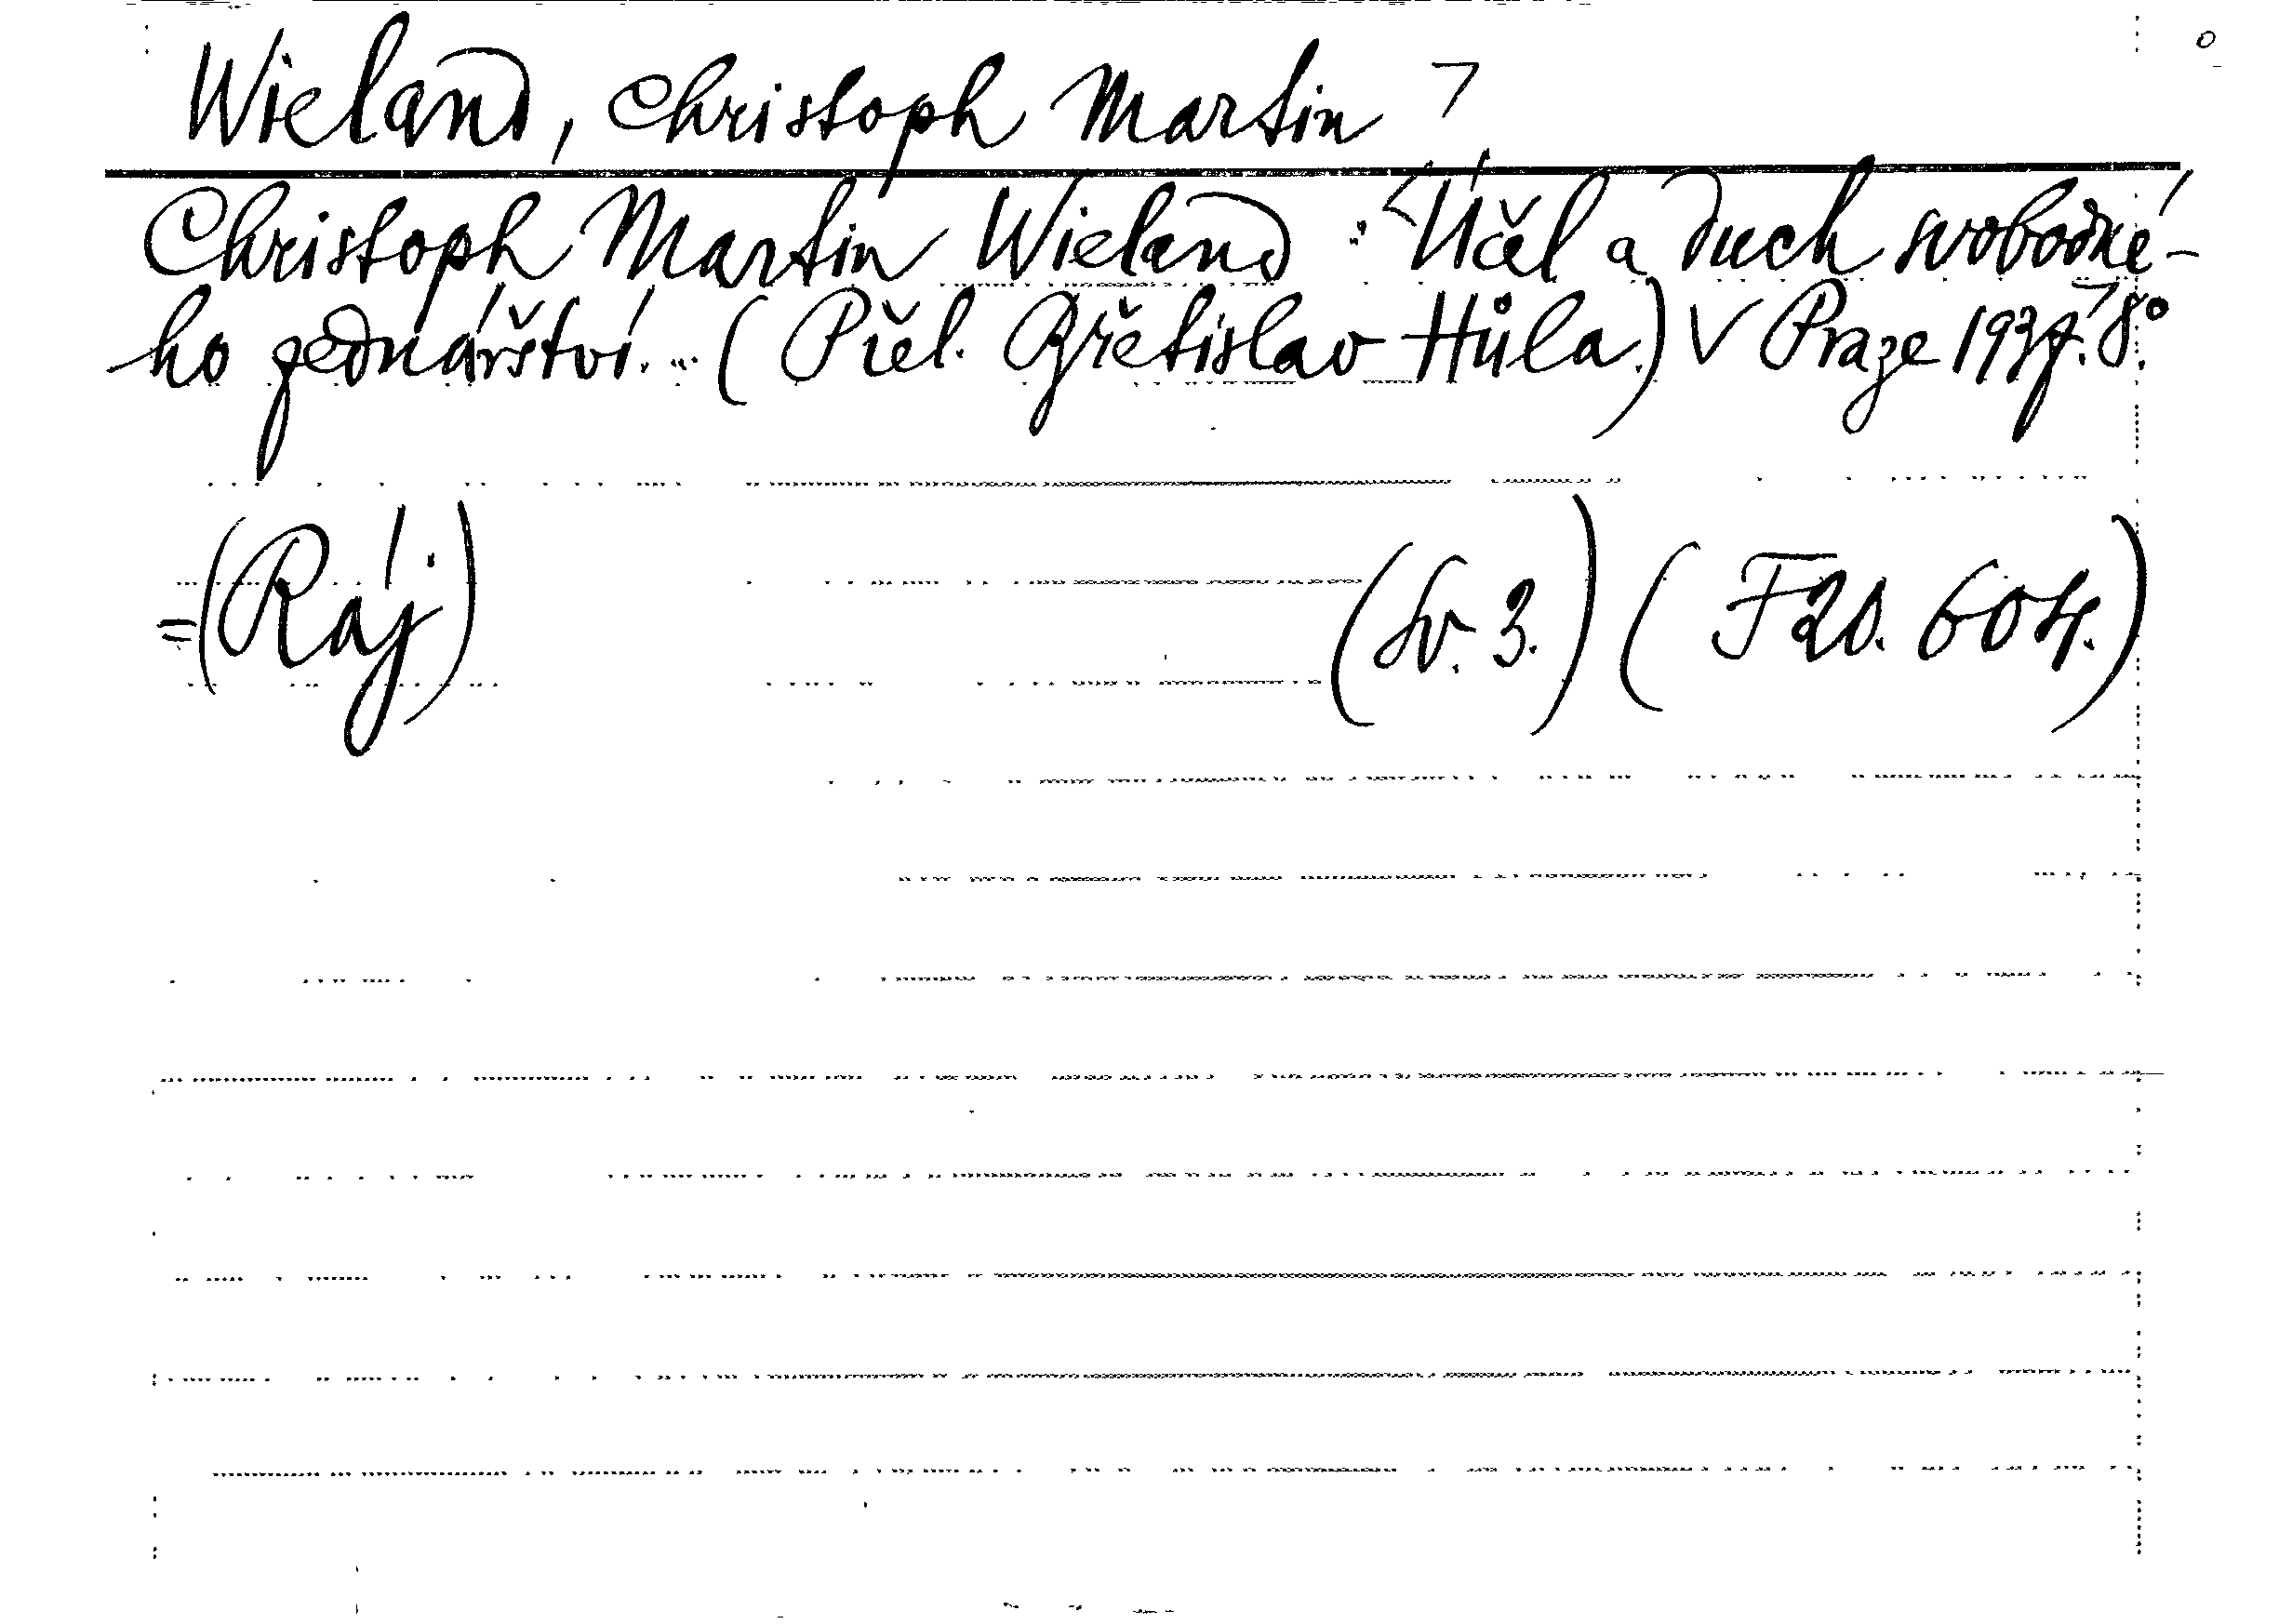 Wieland, Christoph Martin
Christoph Martin Wieland: Účel a duch svobodné-
ho jednářství... (Přel. Břetislav Hůla.) V Praze 1937. 8°.
=(Ráj) (Sv. 3.) (F20. 604.)